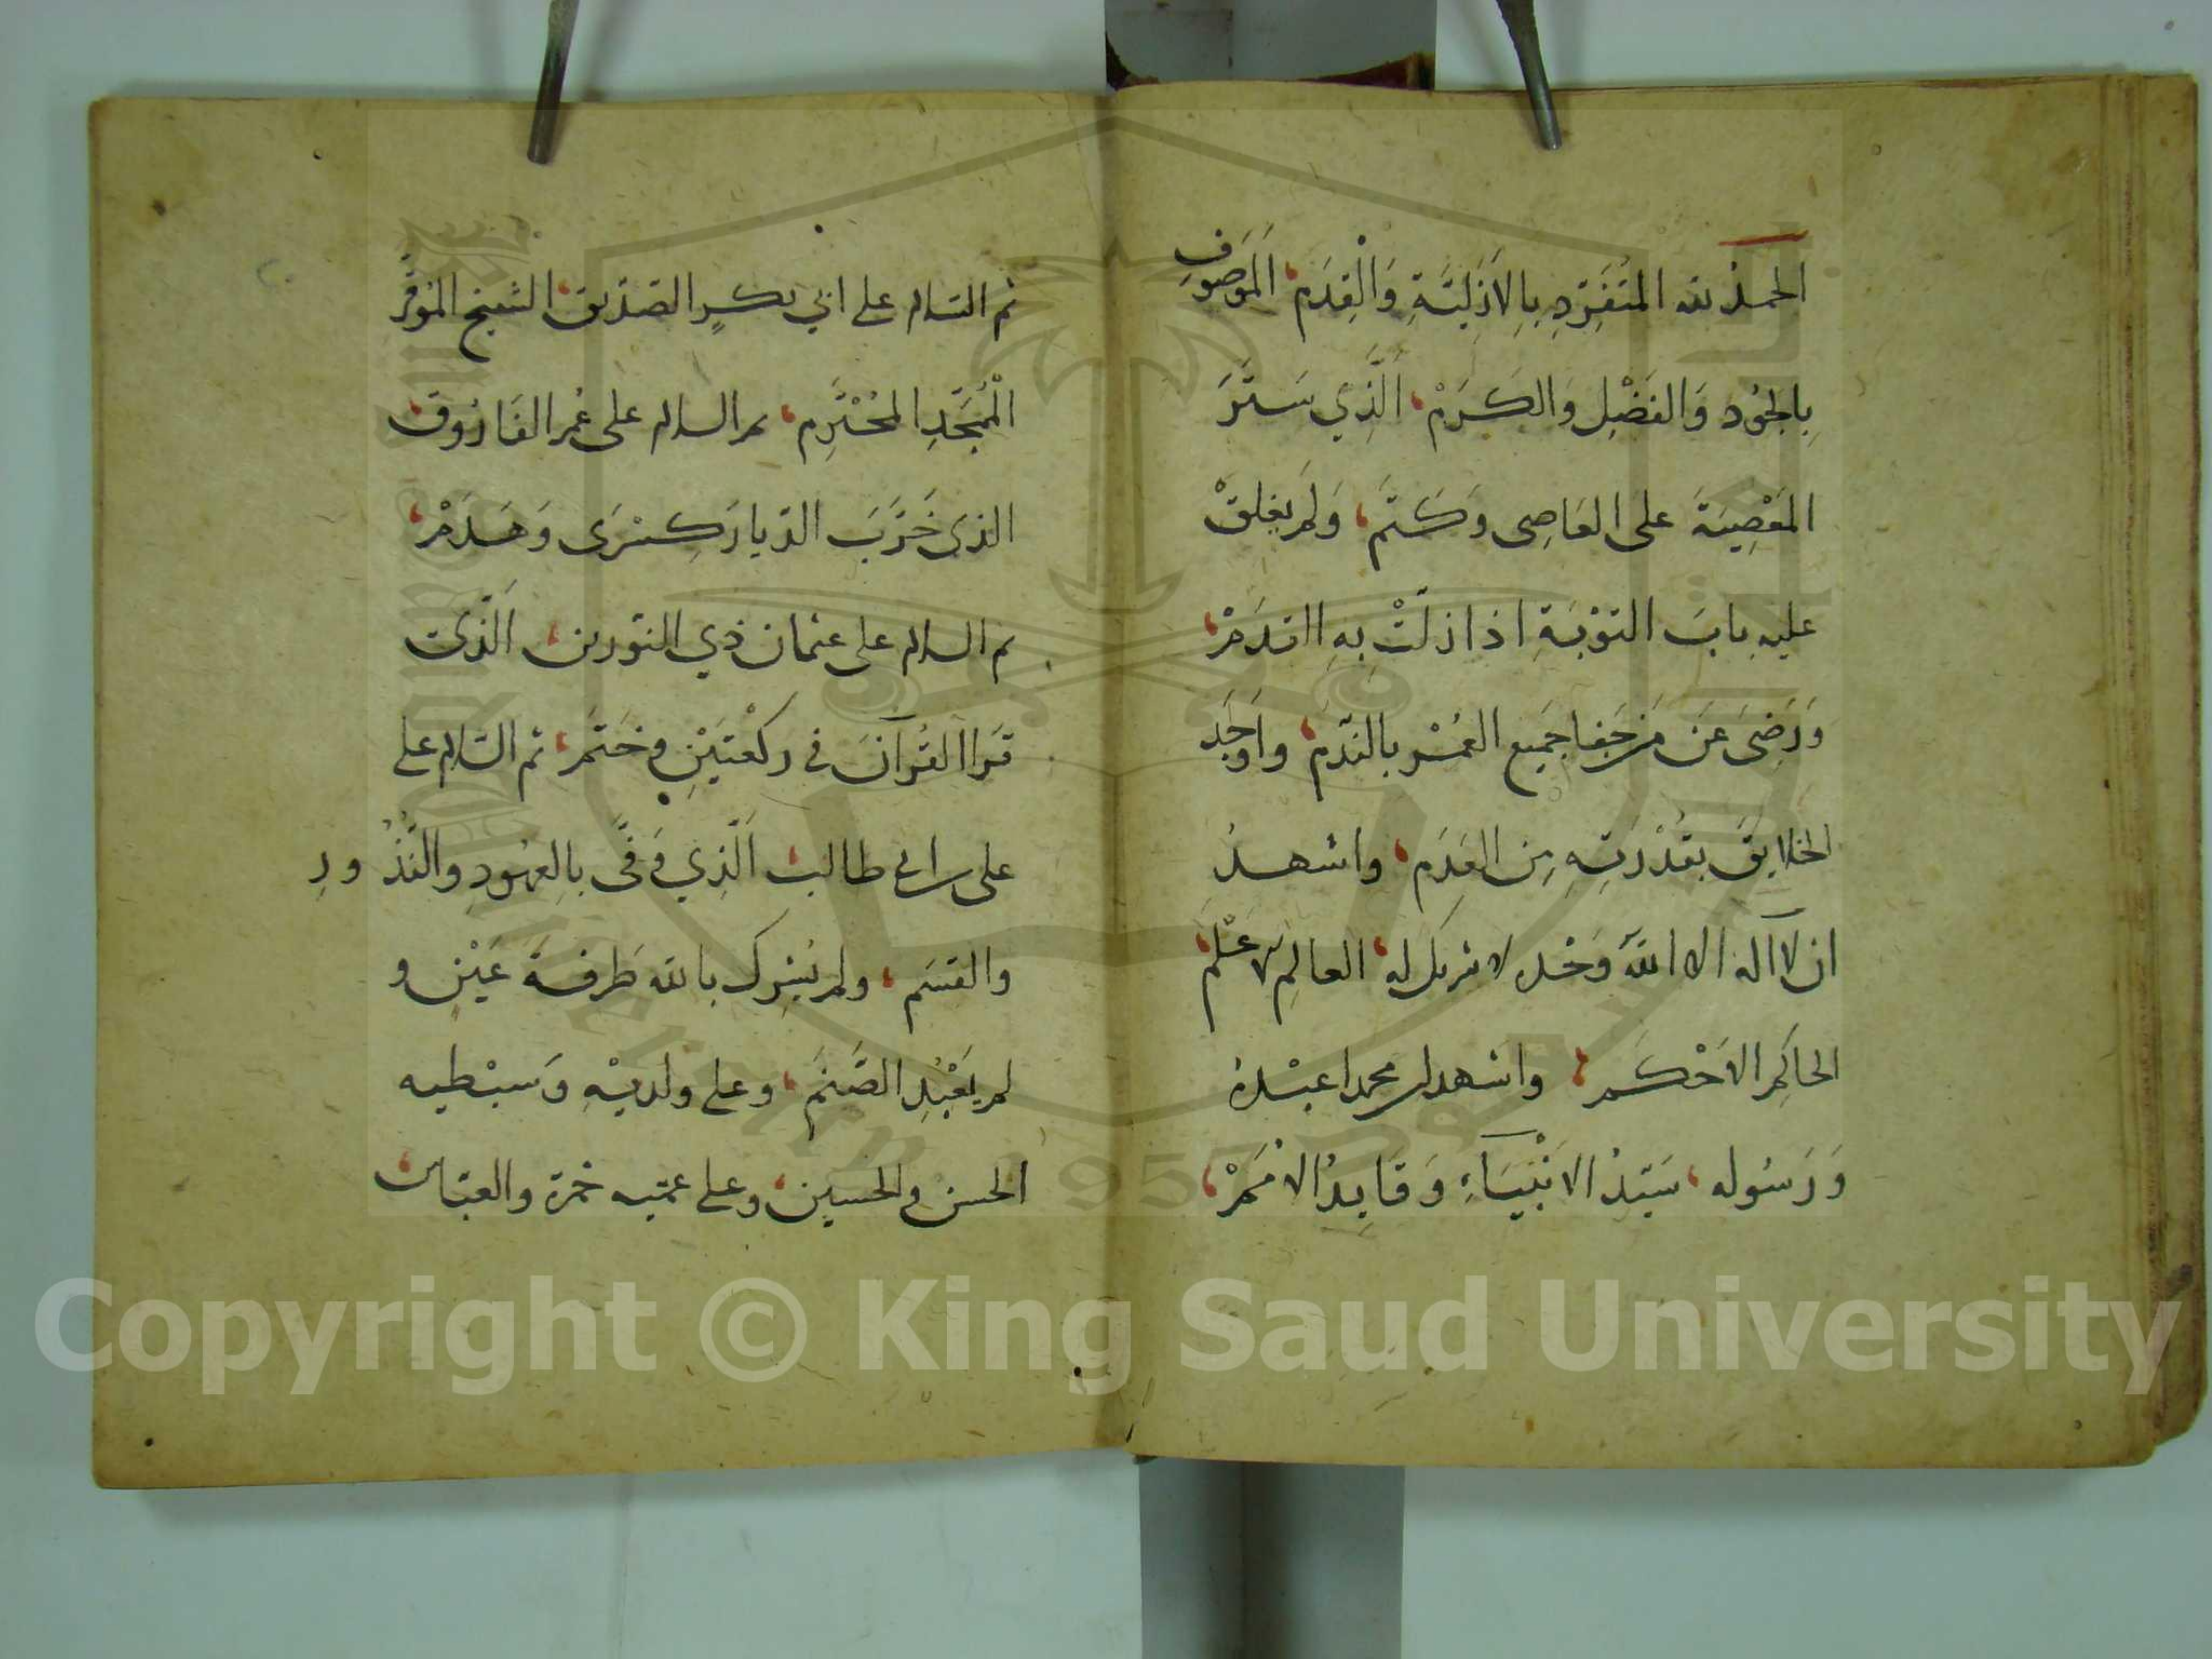 الحمدُ لله المتَفَرِّدِ بِالاَزَلِيَّةِ وَالْقِدَم، اَلمَوصوُفِ
بِالجُودِ وَالفَضْلِ وَالكَرَمْ، اَلَّذِي سَتَرَ
المَعْصِيَةَ على العَاصِى وَكَتَم، وَلَم يغلقْ
عليهِ بابَ التوْبَةِ اذا زلّتْ بِهِ القدَمْ،
وَرَضِىَ عَن مَن جَفا جَمِيع العُمْر بالندَم، واَوجَد
الخلايقَ بقُدْرَتِهِ مِن العَدَم، واشهدُ
ان لا اله الا الله وَحْده لا شريك له، العالِم الاعْلم،
الحاكِم الاَحْكَم، واشهد ان محمدا عبْدهُ
وَرَسُوله، سَيّدُ الانْبيَآءِ وَقَايِدُ الاُمَمْ،
ثم السّلام على ابي بكرٍ الصّدّيق، الشيخ الموَقَّر
الْمُمَجَّدِ المُحْتَرَم، ثم السلام على عُمر الفَارُوق،
الذى خَرَّبَ الدّيارَ كِسْرَى وَهَدَمْ،
ثم السلام على عثمان ذي النّورين، الّذى
قَراَ القُرآنَ في ركْعتيْنِ وخَتَم، ثم السّلام على
على ابن ابى طالب، الَّذِي وَفَّى بِالعهُودِ والنُّذُورِ
والقسَم، ولم يُشِرك بالله طَرفةَ عَيْنٍ و
لم يَعْبُدِ الصَّنَم، وعلى ولديْهِ وَسبْطيه
الحسن والحسين، وعلى عمّيه حَمزة والعبّاس،
Copyright © King Saud University